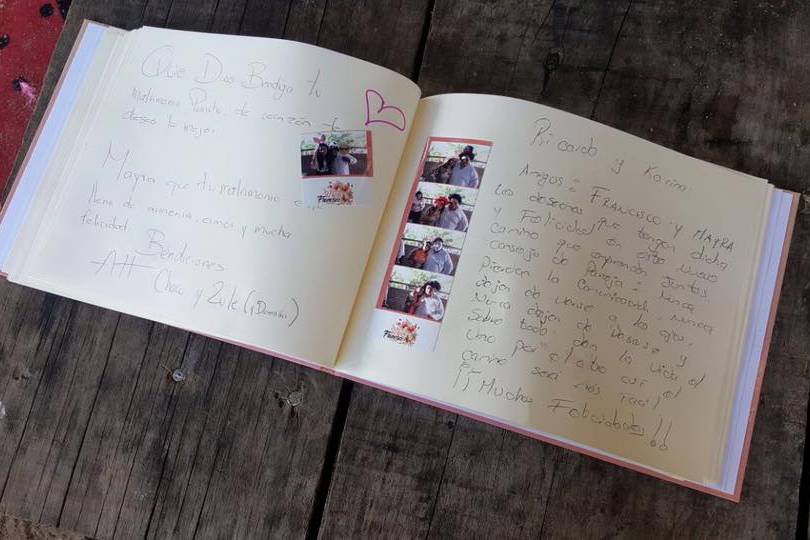 Que Dios Bendiga tu
matrimonio Panita de corazón te
deseo lo mejor
Mayra que tu matrimonio
llena de armonia, amor y mucha
felicidad.
Bendiciones
Att
Chao y Zule
Ricardo y Karina
Amigos: FRANCISCO Y MAYRA
Les deseamos que tengan dicha
y Felicidad en este nuevo
camino que emprenden juntos
consejo de Pareja: Nunca
Pierdan la Comunicación, Nunca
dejen de verse a los ojos,
Nunca dejen de besarse y
Sobre todo den la vida el
uno por el otro así el
camino será más facil
¡¡Muchas Felicidades!!